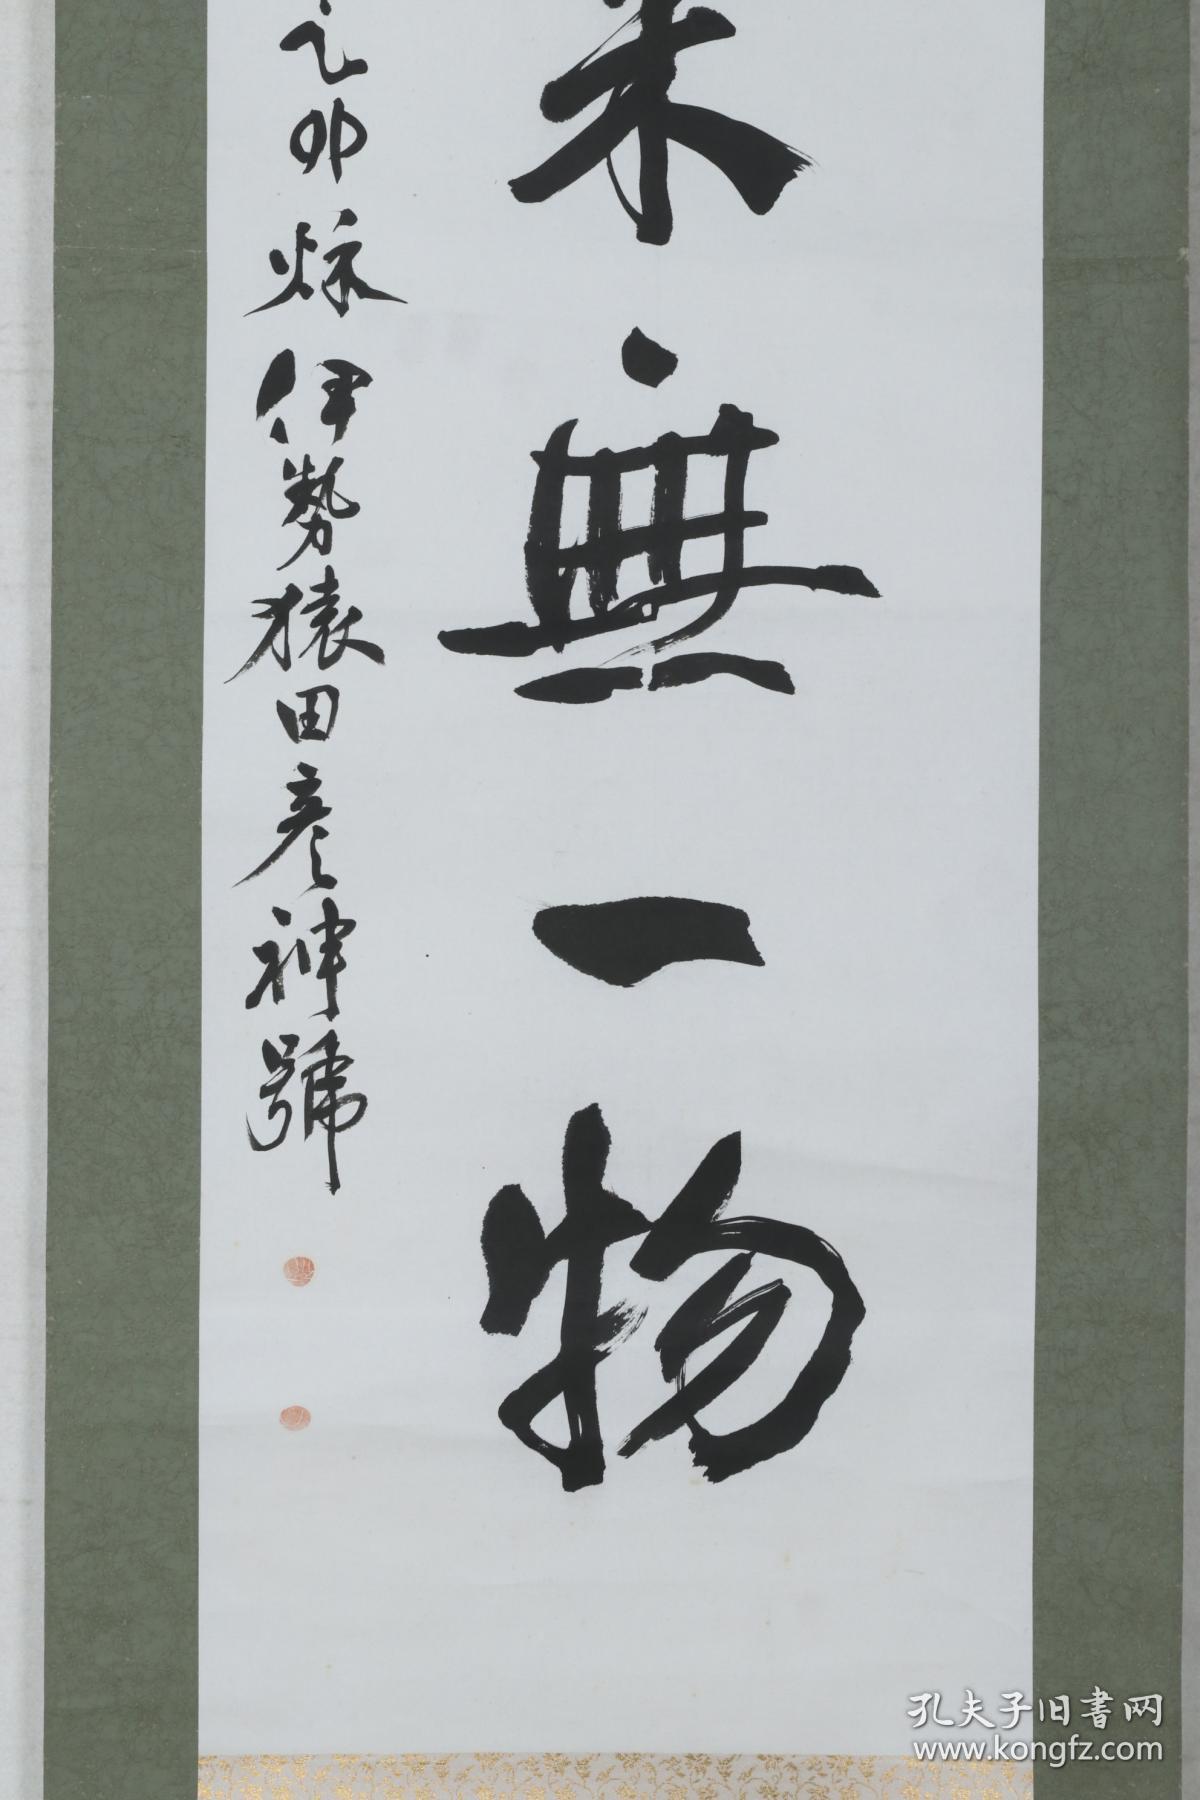 来無一物
乙卯秌伊勢猿田彦神號
孔夫子旧書网
www.kongfz.com